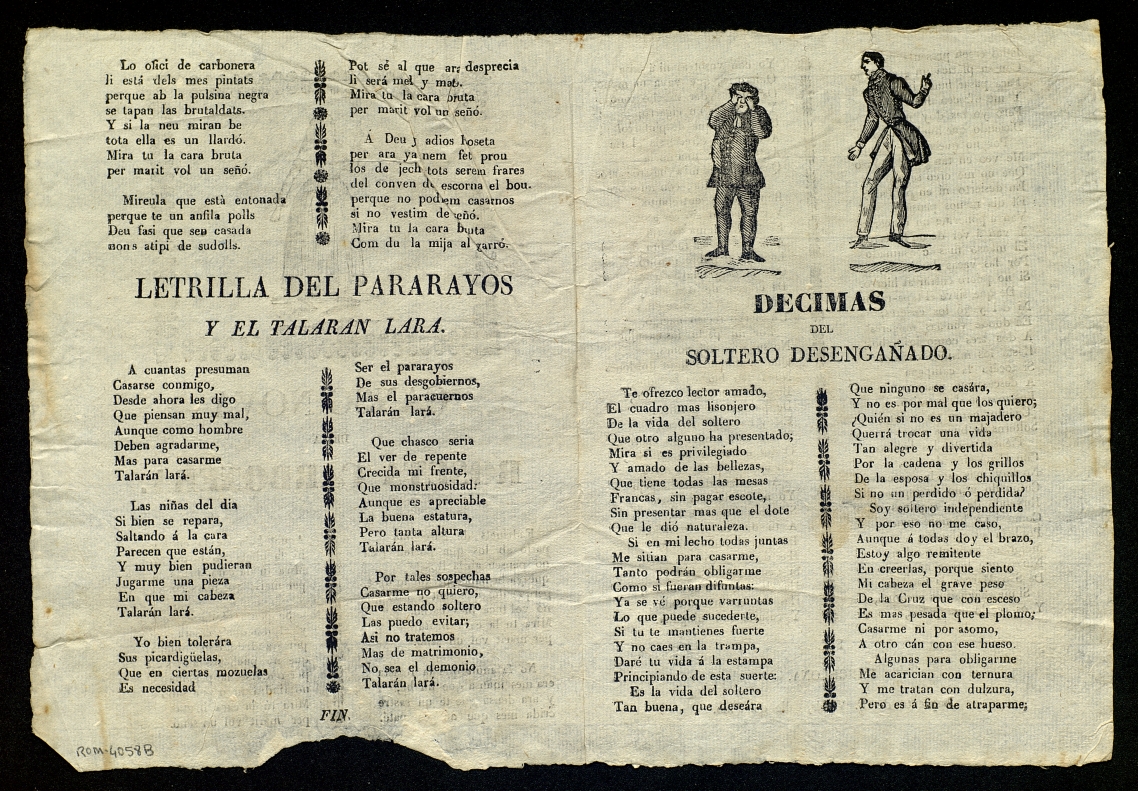 Lo ofici de carbonera
li está dels mes pintats
perque ab la pulsina negra
se tapan las brutaldats.
Y si la neu miran be
tota ella es un llardó.
Mira tu la cara bruta
per marit vol un señó.
Mireula que está entonada
perque te un anfila polls
Deu fasi que seu casada
nons atipi de sudolls.
Pot sé al que ara desprecia
li será mel y mató.
Mira tu la cara bruta
per marit vol un señó.
Á Deu y adios hoseta
per ara ya nem fet prou
los de jech tots serem frares
del conven de escorna el bou.
perque no podem casarnos
si no vestim de señó.
Mira tu la cara bruta
Com du la mija al garró.
LETRILLA DEL PARARAYOS
Y EL TALARAN LARA.
A cuantas presuman
Casarse conmigo,
Desde ahora les digo
Que piensan muy mal,
Aunque como hombre
Deben agradarme,
Mas para casarme
Talarán lará.
Las niñas del dia
Si bien se repara,
Saltando á la cara
Parecen que están,
Y muy bien pudieran
Jugarme una pieza
En que mi cabeza
Talarán lará.
Yo bien tolerára
Sus picardigüelas,
Que en ciertas mozuelas
Es necesidad
Ser el pararayos
De sus desgobiernos,
Mas el paracuernos
Talarán lará.
Que chasco seria
El ver de repente
Crecida mi frente,
Que monstruosidad:
Aunque es apreciable
La buena estatura,
Pero tanta altura
Talarán lará.
Por tales sospechas
Casarme no quiero,
Que estando soltero
Las puedo evitar;
Asi no tratemos
Mas de matrimonio,
No sea el demonio
Talarán lará.
FIN.
ROM-4058B
DECIMAS
DEL
SOLTERO DESENGAÑADO.
Te ofrezco lector amado,
El cuadro mas lisonjero
De la vida del soltero
Que otro alguno ha presentado;
Mira si es privilegiado
Y amado de las bellezas,
Que tiene todas las mesas
Francas, sin pagar escote,
Sin presentar mas que el dote
Que le dió naturaleza.
Si en mi lecho todas juntas
Me sitian para casarme,
Tanto podrán obligarme
Como si fueran difuntas:
Ya se vé porque varruntas
Lo que puede sucederte,
Si tu te mantienes fuerte
Y no caes en la trampa,
Daré tu vida á la estampa
Principiando de esta suerte:
Es la vida del soltero
Tan buena, que deseára
Que ninguno se casára,
Y no es por mal que los quiero;
¿Quién si no es un majadero
Querrá trocar una vida
Tan alegre y divertida
Por la cadena y los grillos
De la esposa y los chiquillos
Si no un perdido ó perdida?
Soy soltero independiente
Y por eso no me caso,
Aunque á todas doy el brazo,
Estoy algo remitente
En creerlas, porque siento
Mi cabeza el grave peso
De la Cruz que con esceso
Es mas pesada que el plomo;
Casarme ni por asomo,
A otro cán con ese hueso.
Algunas para obligarme
Me acarician con ternura
Y me tratan con dulzura,
Pero es á fin de atraparme;